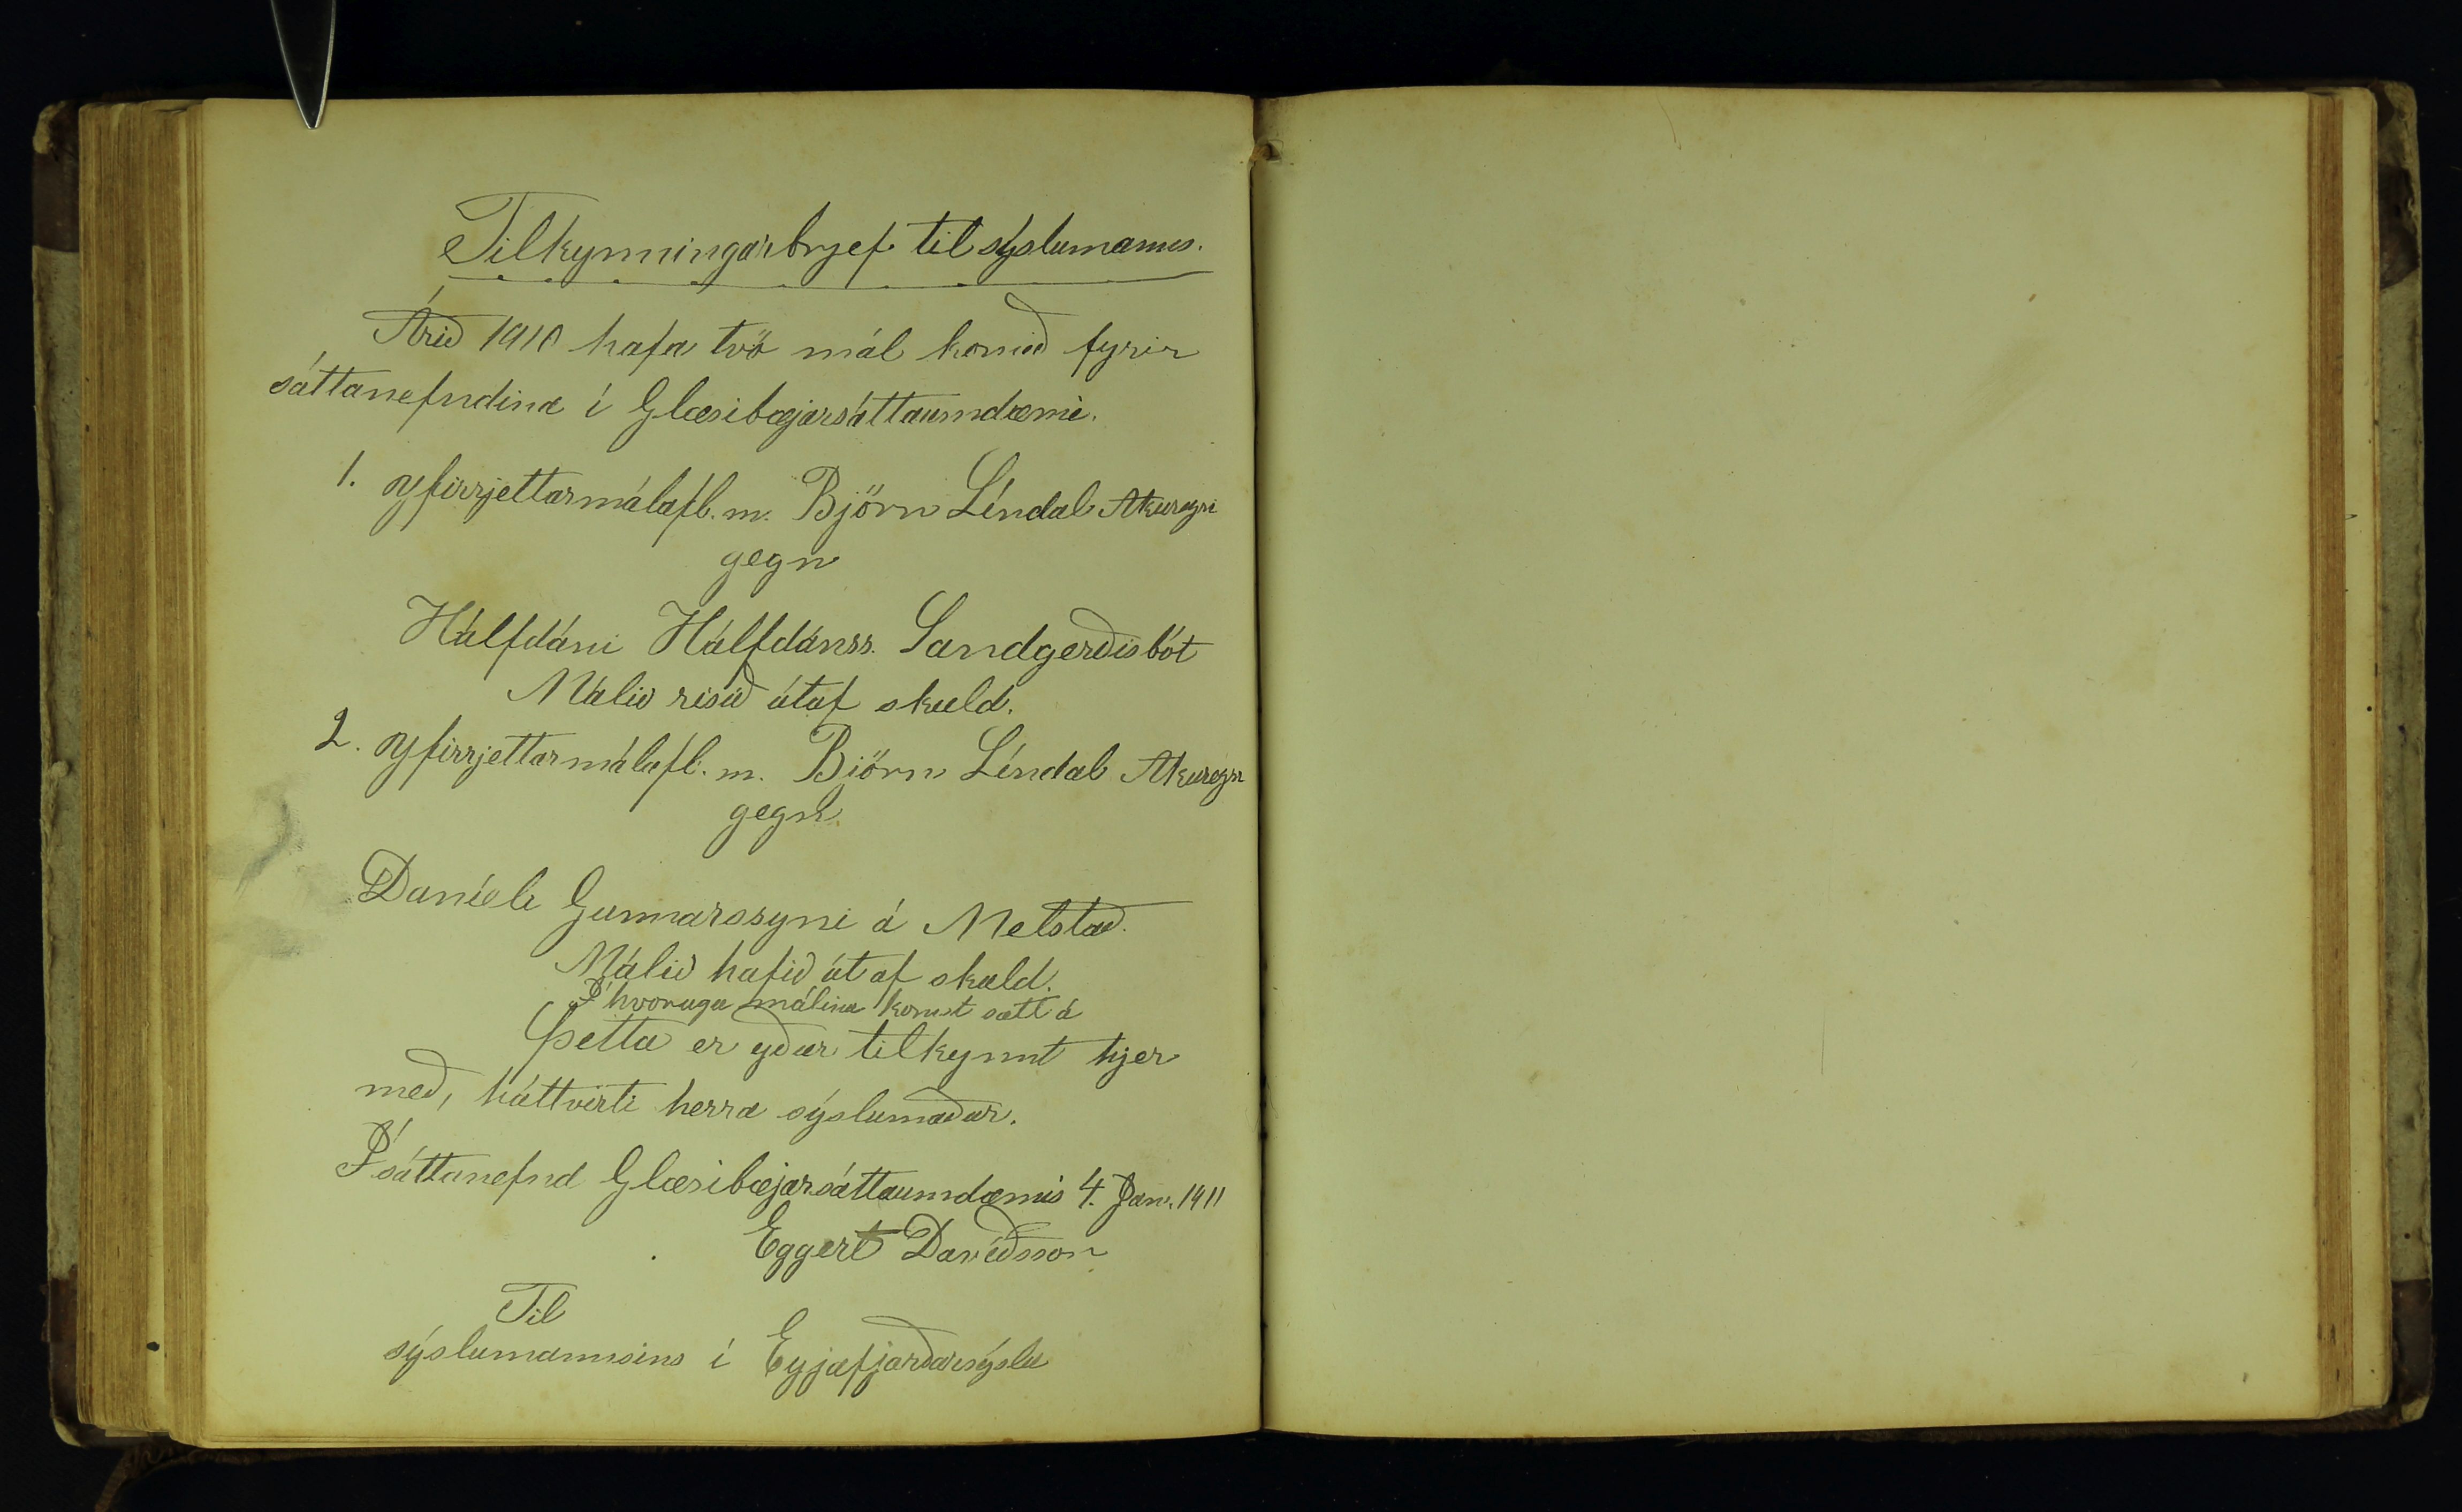 Tilkynningarbrjef til sýslumanns.
Árið 1910 hafa tvö mál komið fyrir
sáttanefndina í Glæsibæjarsáttaumdæmi.
1. yfirrjettarmálafl.m. Björn Líndal Akureyri
gegn
Hálfdáni Hálfdánss. Sandgerðisbót
Málið risið útaf skuld.
2. yfirrjettarmálafl.m. Björn Líndal Akureyri
gegn
Daníeli Gunnarssyni á Melstað.
Málið hafið út af skuld.
Í hvoruga málinu komst sætt á
Þetta er yður tilkynnt hjer
með, háttvirti herra sýslumaður.
Í sáttanefnd Glæsibæjarsáttaumdæmis 4. Jan. 1911
Eggert Davíðsson
Til
sýslumannsins í Eyjafjarðarsýslu